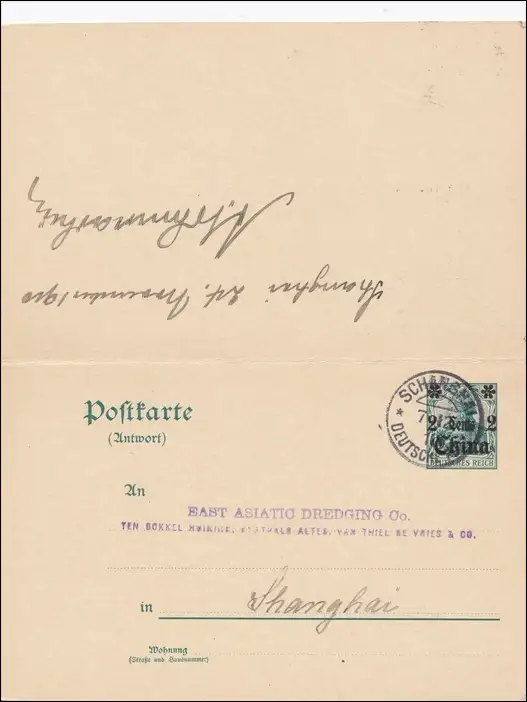 Shanghai 1st. November 1910
Postkarte
(Antwort)
SCHANGHAI
DEUTSCHE
2 Cents 2
China
DEUTSCHES REICH
An
EAST ASIATIC DREDGING Co.
TEN BOKKEL HUININK, ALTES, VAN THIEL DE VRIES & CO.
in Shanghai
Wohnung
(Straße und Hausnummer)